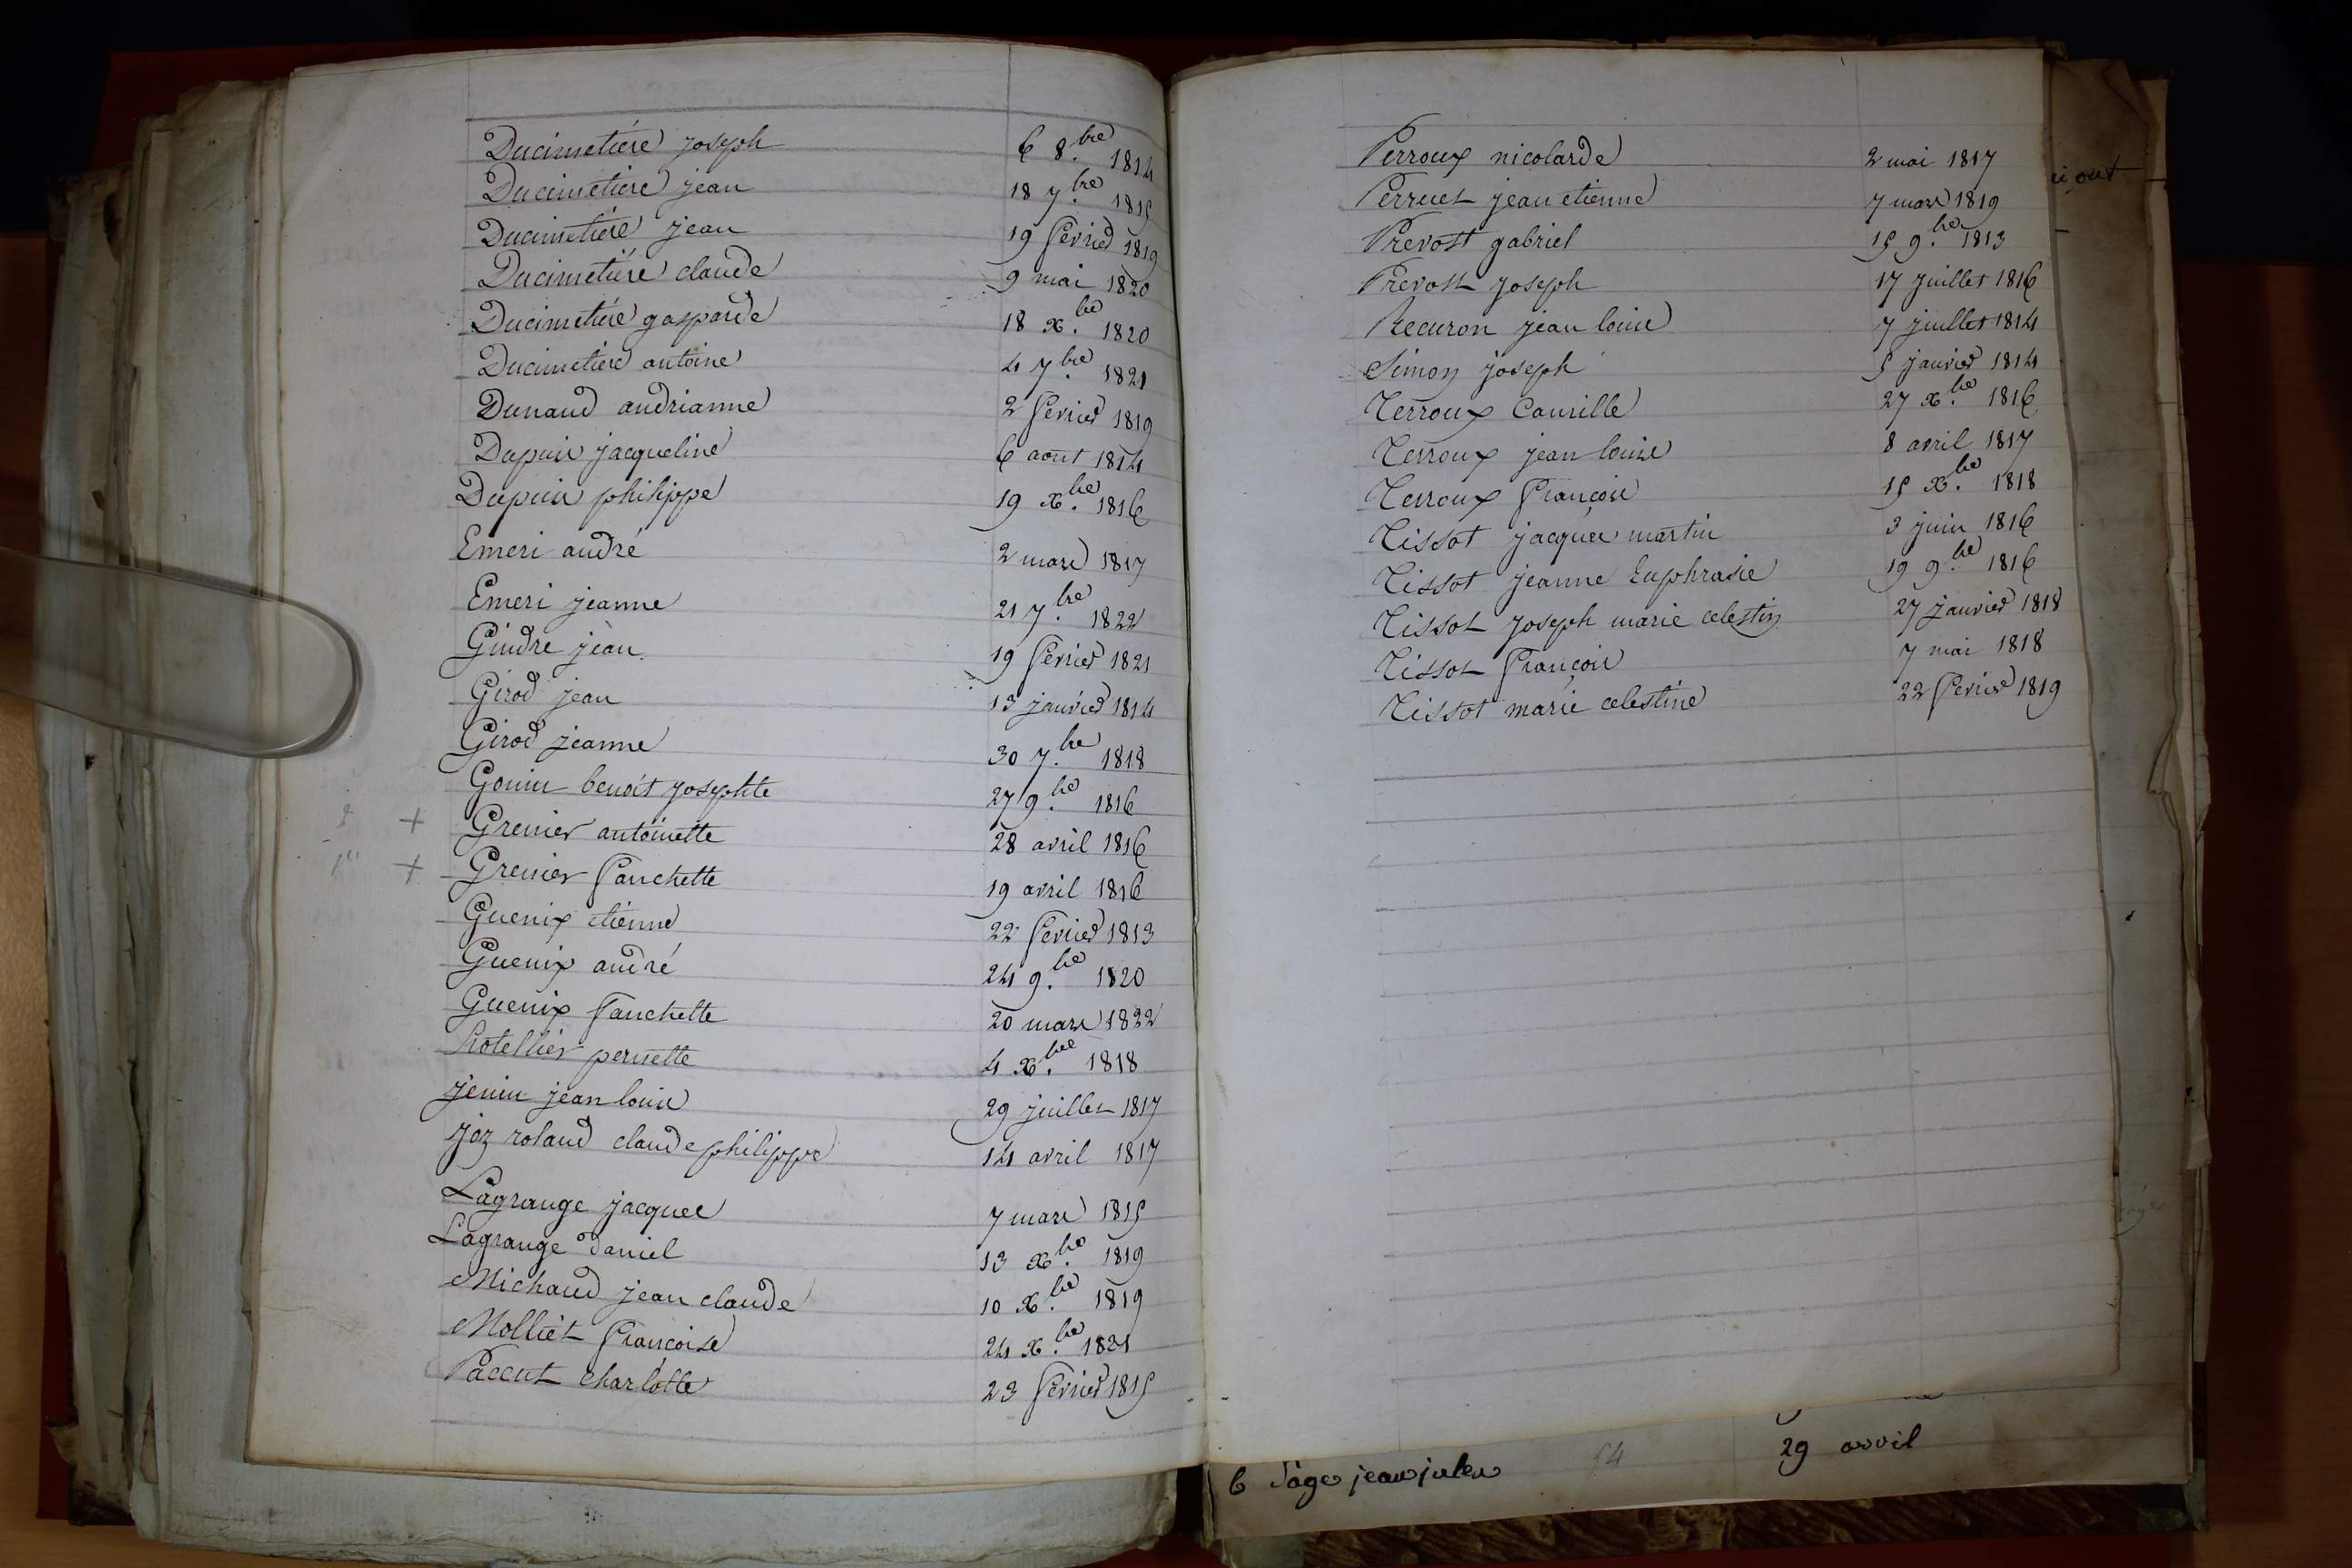 Ducimetière joseph 6 8.bre 1814
Ducimetière jean 18 7.bre 1815
Ducimetière jean 19 fevrier 1819
Ducimetière claude 9 mai 1820
Ducimetière gasparde 18 x.bre 1820
Ducimetière antoine 4 7.bre 1821
Dunand andrianne 2 fevrier 1819
Dupuis jacqueline 6 aout 1814
Dupuis philippe 19 x.bre 1816
Emeri andré 2 mars 1817
Emeri jeanne 21 7.bre 1822
Gindre jean 19 fevrier 1821
Girod jean 13 janvier 1814
Girod jeanne 30 7.bre 1818
Gouin benoit josephte 27 9.bre 1816
2 + Grenier antoinette 28 avril 1816
1er + Grenier fanchette 19 avril 1816
Guenix etienne 22 fevrier 1813
Guenix andré 24 9.bre 1820
Guenix fanchette 20 mars 1822
hotellier pernette 4 x.bre 1818
jenin jean louis 29 juillet 1817
joz roland claude philippe 14 avril 1817
Lagrange jacques 7 mars 1815
Lagrange daniel 13 x.bre 1819
Michaud jean claude 10 x.bre 1819
Molliet françoise 24 x.bre 1821
Paccut charlotte 23 fevrier 1815
Perroux nicolarde 2 mai 1817
Perruet jean etienne 7 mars 1819
Prevost gabriel 15 9.bre 1813
Prevost joseph 17 juillet 1816
Recuron jean louis 7 juillet 1814
Simon joseph 5 janvier 1814
Terroux Camille 27 x.bre 1816
Terroux jean louise 8 avril 1817
Terroux françois 15 x.bre 1818
Tissot jacques martin 3 juin 1816
Tissot jeanne Euphrasie 19 9.bre 1816
Tissot joseph marie celestin 27 janvier 1818
Tissot françois 7 mai 1818
Tissot marie celestine 22 fevrier 1819
6 Page jean jules 54 29 avril